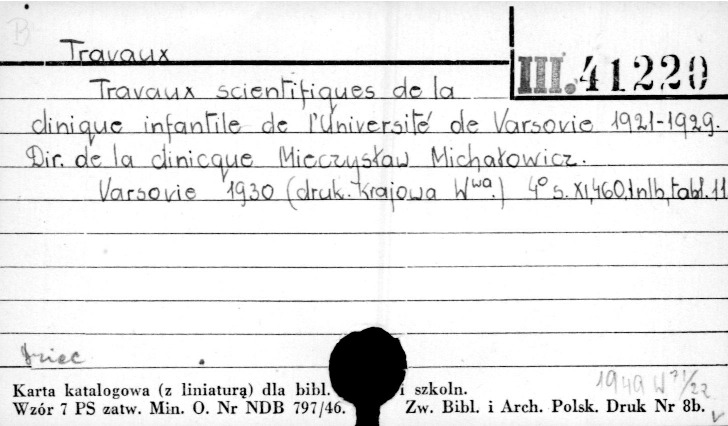 B
Travaux
III. 41220
Travaux scientifiques de la
clinique infantile de l'Université de Varsovie 1921-1929.
Dir. de la clinicque Mieczysław Michałowicz.
Varsovie 1930 (druk. Krajowa Wwa.) 4° s. XI, 460, 1 nlb, tabl. 11
Karta katalogowa (z liniaturą) dla bibl. i szkoln.
1949 W 71/22
Wzór 7 PS zatw. Min. O. Nr NDB 797/46. Zw. Bibl. i Arch. Polsk. Druk Nr 8b.